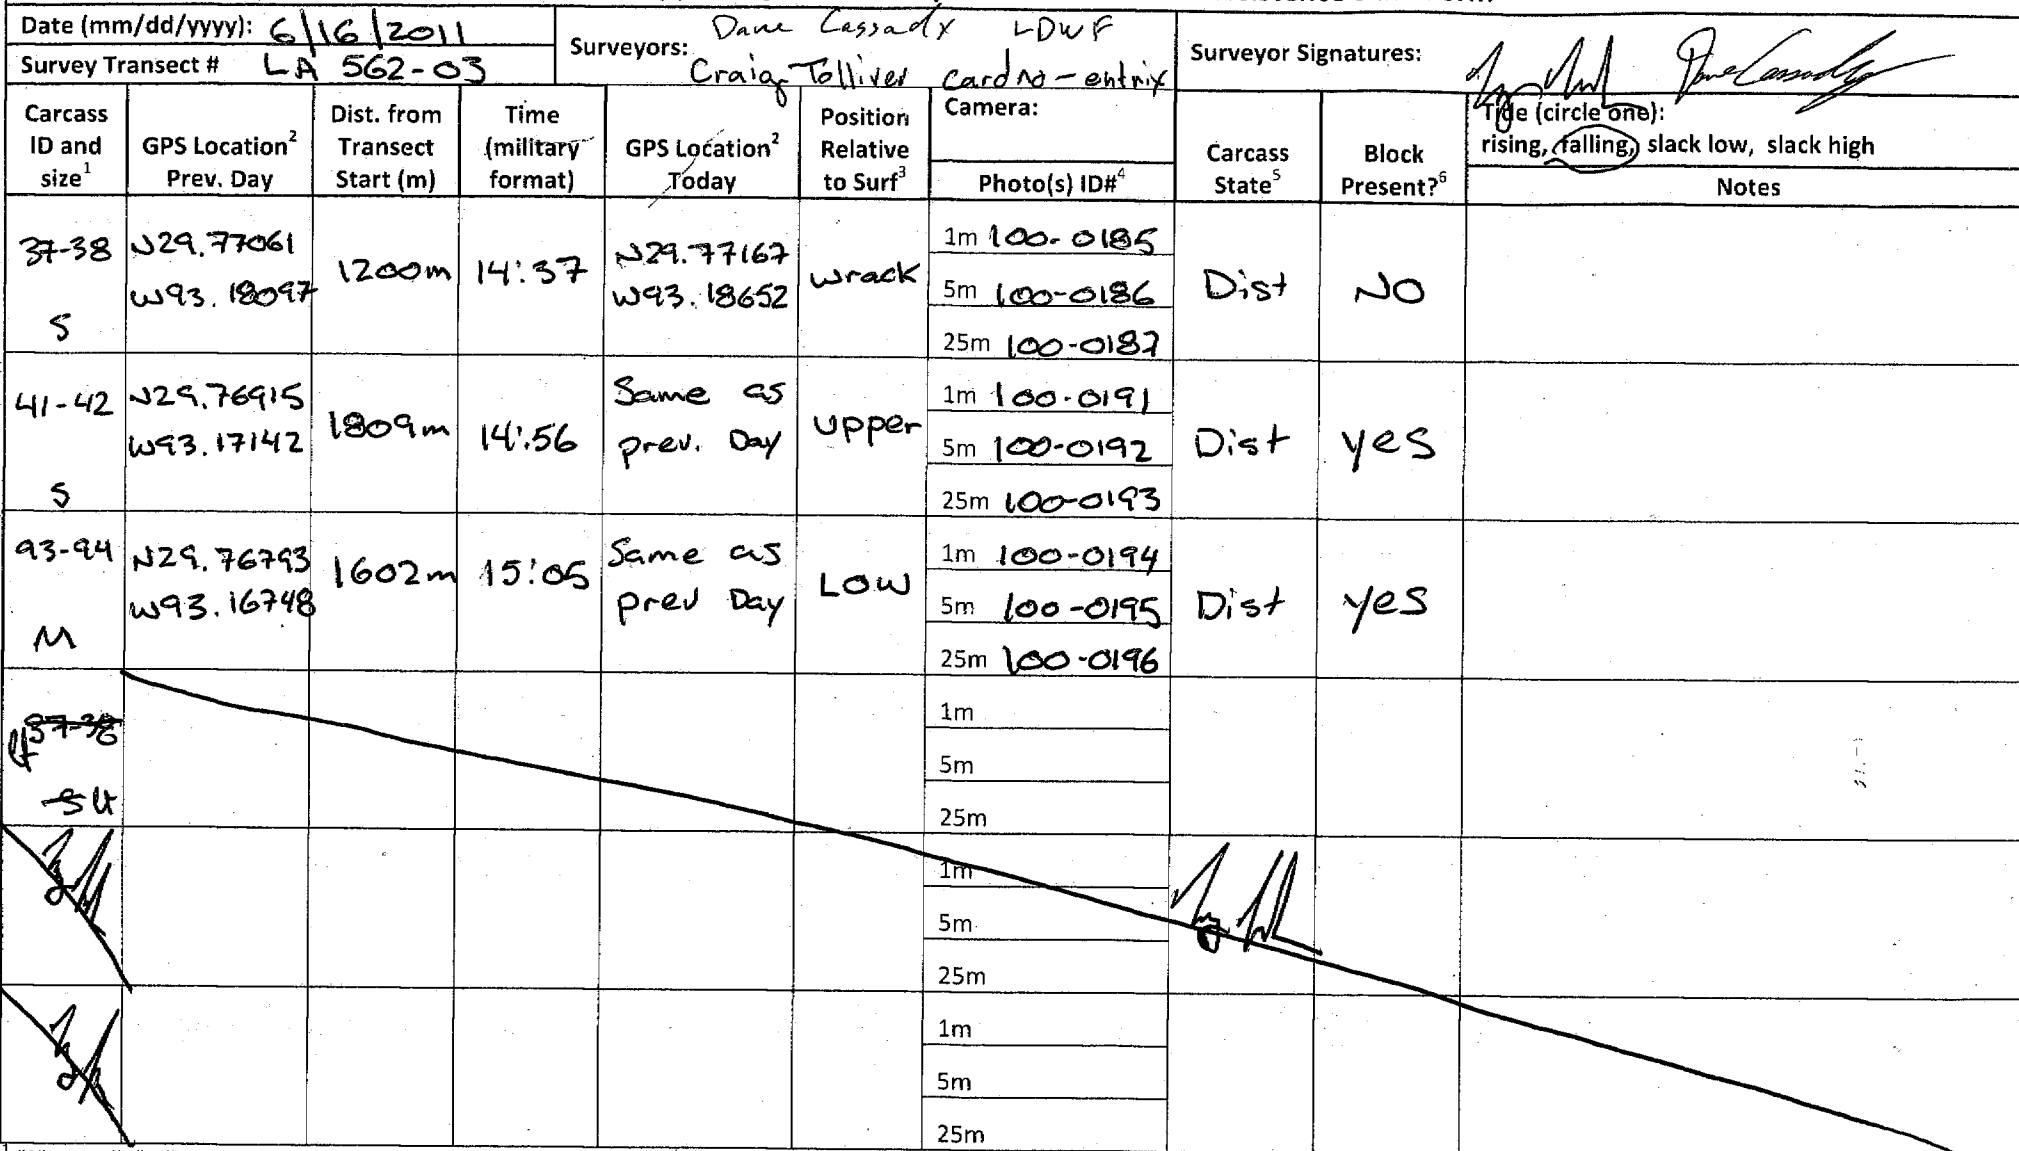 Date (mm/dd/yyyy): 6/16/2011
Survey Transect # LA 562-03
Surveyors: Dane Cassady LDWF
Craig Tolliver cardno-entrix
Surveyor Signatures:
Carcass ID and size1
GPS Location2 Prev. Day
Dist. from Transect Start (m)
Time (military format)
GPS Location2 Today
Position Relative to Surf3
Camera:
Photo(s) ID#4
Carcass State5
Block Present?6
Tide (circle one):
rising, falling, slack low, slack high
Notes
37-38
S
N29.77061
W93.18097
1200m
14:37
N29.77167
W93.18652
wrack
1m 100-0185
5m 100-0186
25m 100-0187
Dist
NO
41-42
S
N29.76915
W93.17142
1809m
14:56
Same as
prev. Day
upper
1m 100-0191
5m 100-0192
25m 100-0193
Dist
yes
93-94
M
N29.76793
W93.16748
1602m
15:05
Same as
prev Day
LOW
1m 100-0194
5m 100-0195
25m 100-0196
Dist
yes
37-38
S
1m
5m
25m
1m
5m
25m
1m
5m
25m